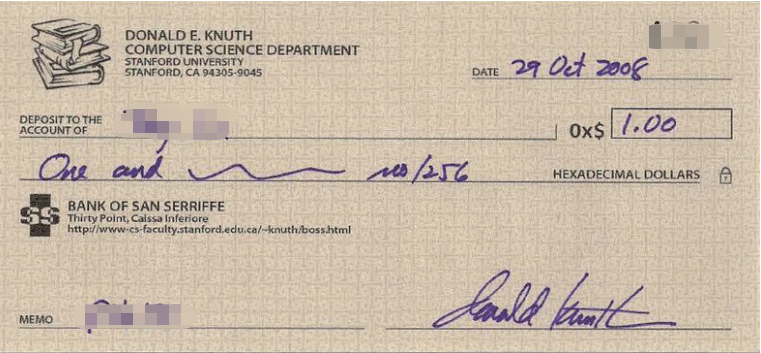 DONALD E. KNUTH
COMPUTER SCIENCE DEPARTMENT
STANFORD UNIVERSITY
STANFORD, CA 94305-9045
DATE 29 Oct 2008
DEPOSIT TO THE
ACCOUNT OF
0x$ 1.00
One and no/256 HEXADECIMAL DOLLARS
SS
BANK OF SAN SERRIFFE
Thirty Point, Caissa Inferiore
http://www-cs-faculty.stanford.edu.ca/~knuth/boss.html
MEMO
Donald Knuth